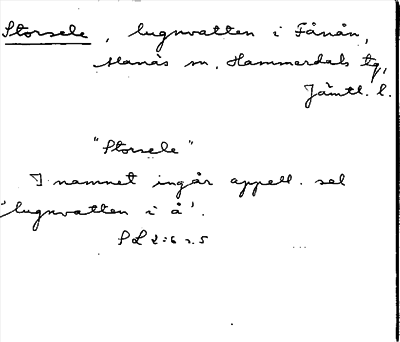 Storsele, lugnvatten i Fånån,
Alanäs sn, Hammerdals tg,
Jämtl. l.
"Storsele"
I namnet ingår appell. sel
'lugnvatten i å'.
PL 2:6 s. 5